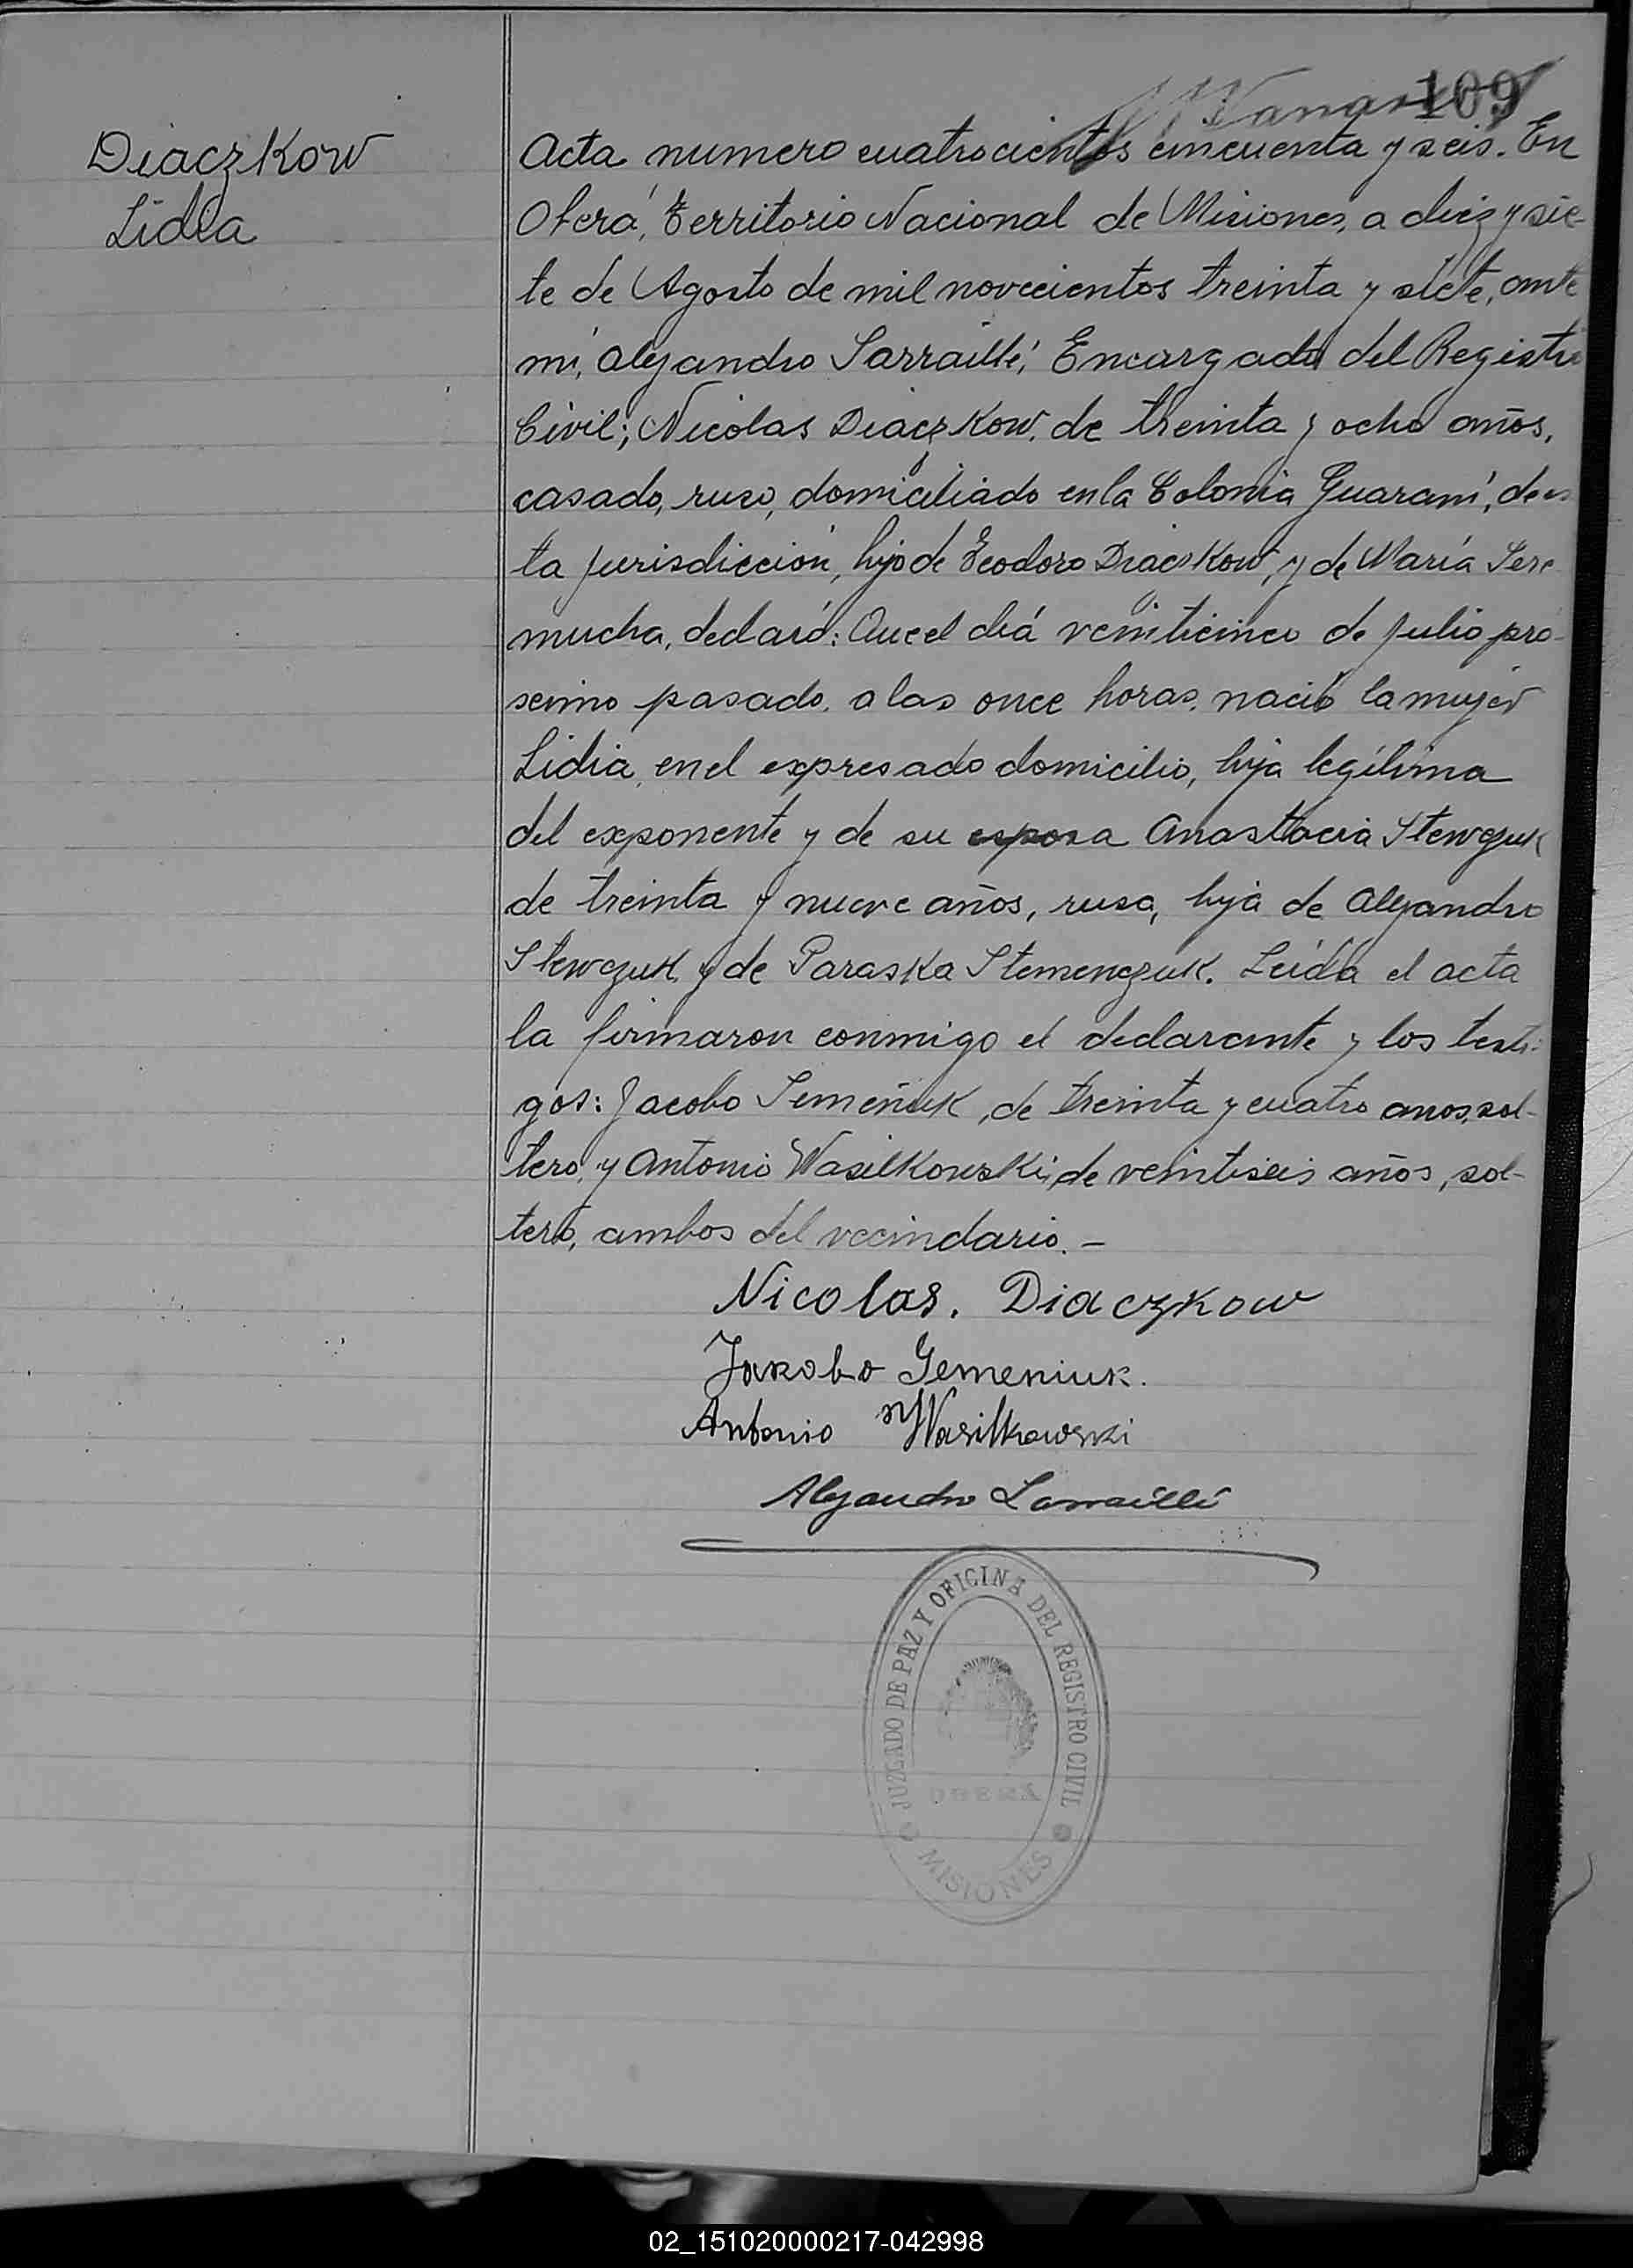 109
Diaczkow
Lidia
Acta numero cuatrocientos cincuenta y seis. En
Oberá, Territorio Nacional de Misiones, a diez y sie-
te de Agosto de mil novecientos treinta y siete, ante
mi, Alejandro Sarraillé, Encargado del Registro
Civil; Nicolas Diaczkow, de treinta y ocho años,
casado, ruso, domiciliado en la Colonia Guaraní, de es
ta jurisdicción, hijo de Teodoro Diaczkow, y de María Sere
mucha, declaró: Que el diá veinticinco de julio pró-
seimo pasado, a las once horas, nació la mujer
Lidia, en el expresado domicilio, hija legítima
del exponente y de su esposa Anastacia Stewczuk
de treinta y nueve años, rusa, hija de Alejandro
Stewczuk y de Paraska Stemenczuk. Leída el acta
la firmaron conmigo el declarante y los testi-
gos: Jacobo Semeñuk, de treinta y cuatro anos, sol-
tero, y Antonio Wasilkowski, de veintiseis años, sol-
tero, ambos del vecindario. -
Nicolas. Diaczkow
Jakobo Semeniuk.
Antonio Wasilkowski
Alejandro Sarraillé
JUZGADO DE PAZ Y OFICINA DEL REGISTRO CIVIL
OBERÁ
MISIONES
02_151020000217-042998